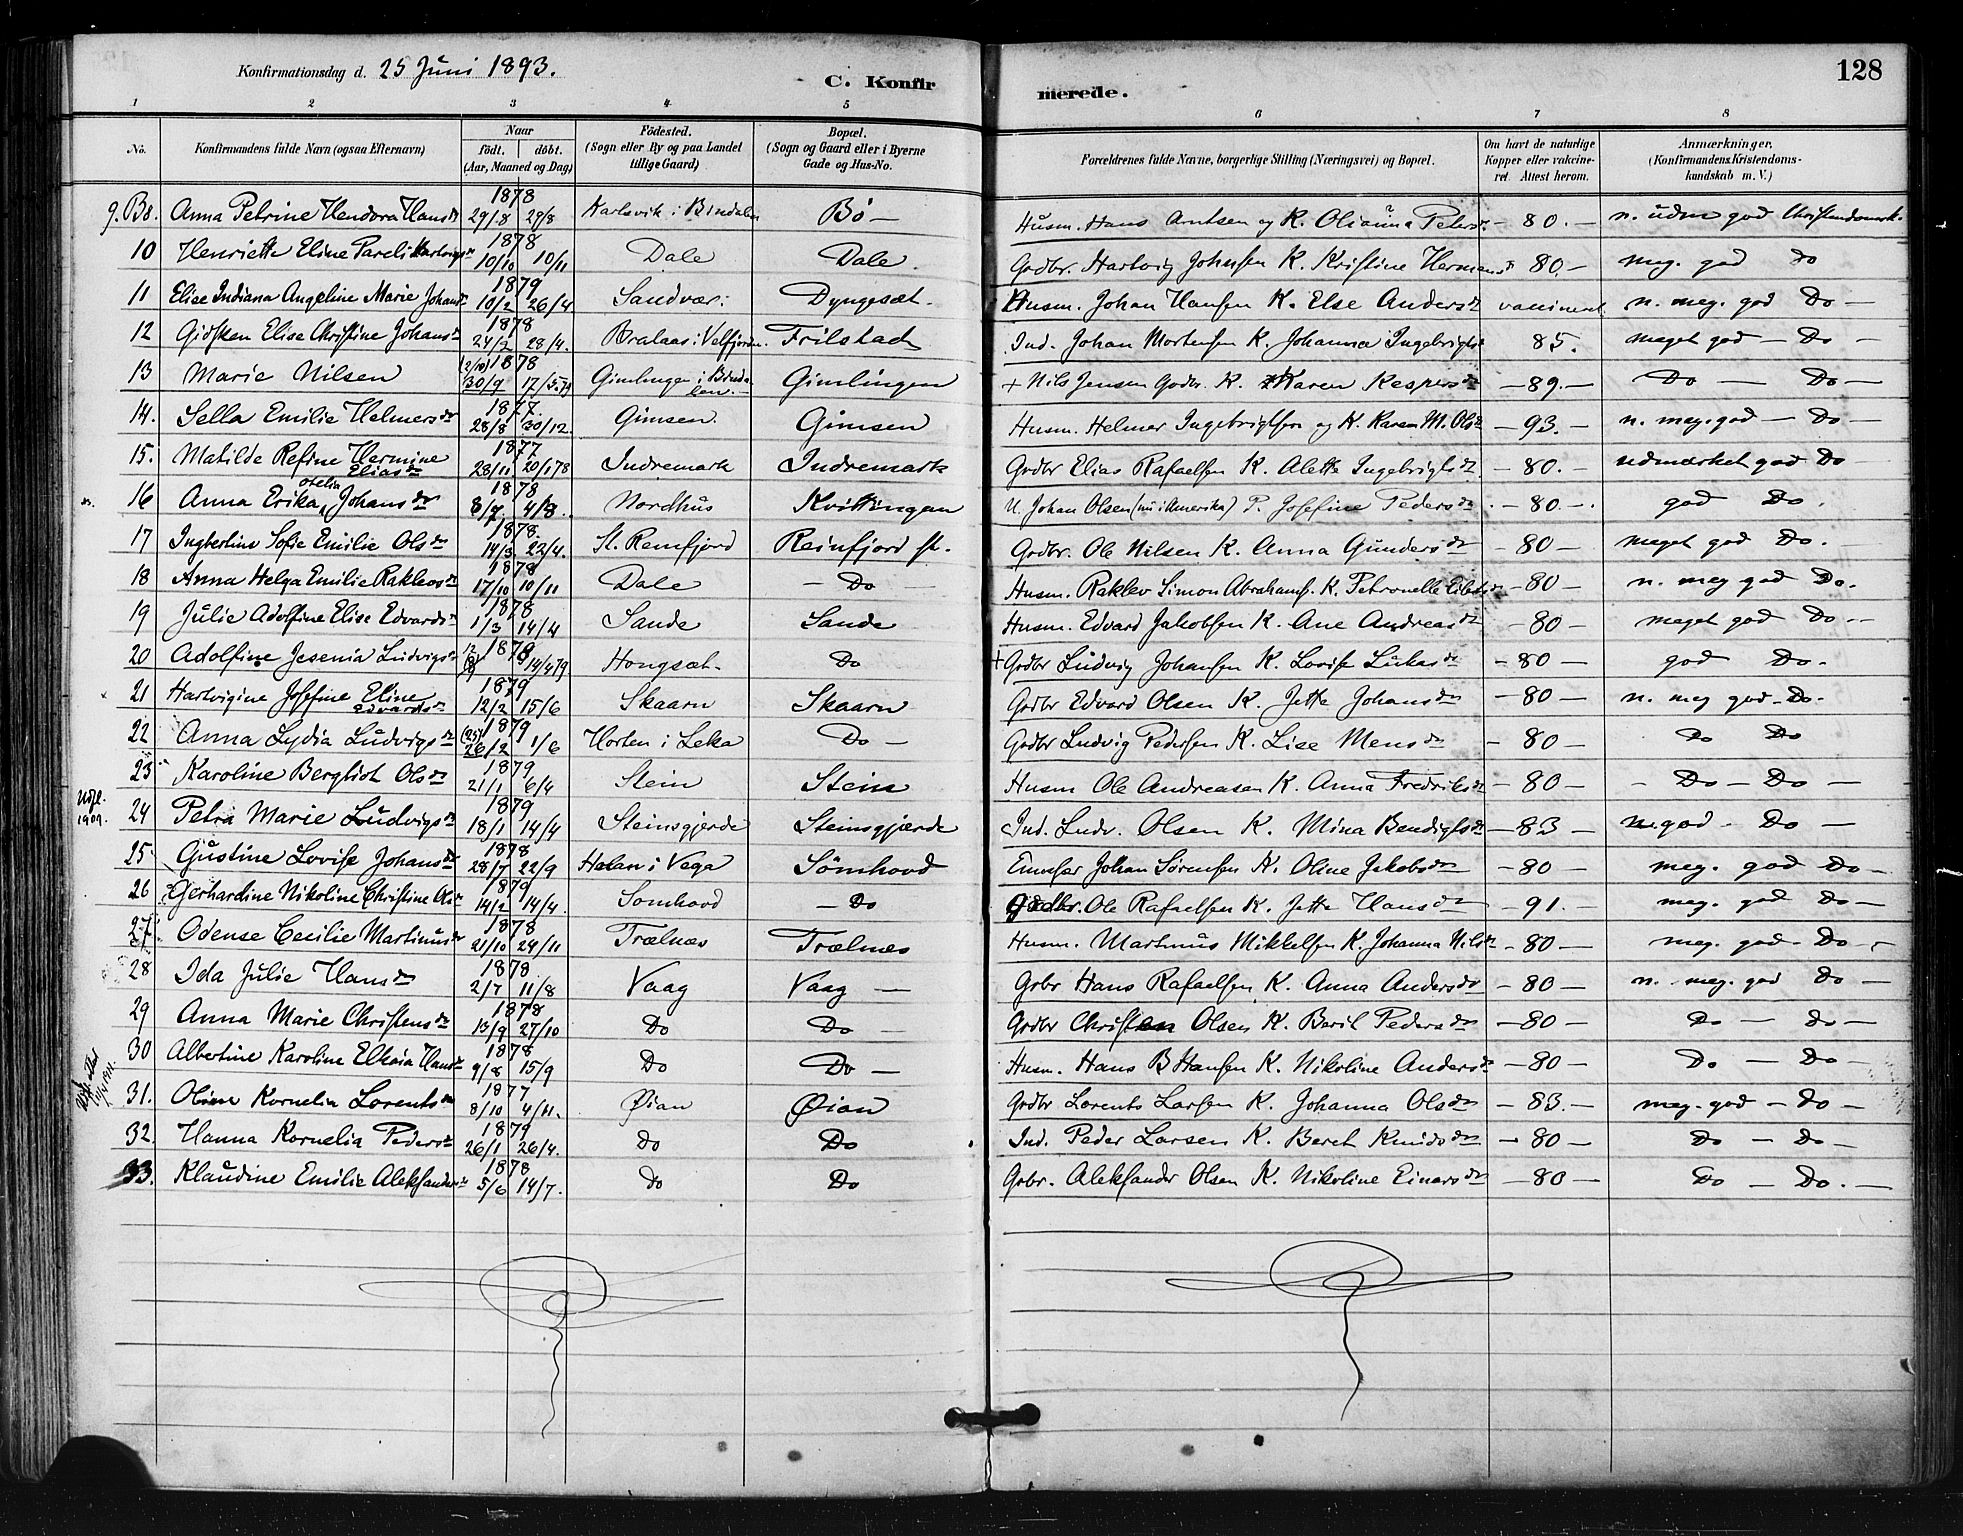 Konfirmationsdag d. 25 Juni 1893.
C. Konfirmerede.
128
1 2 3 4 5 6 7 8
No. Konfirmandens fulde Navn (ogsaa Efternavn) Naar født. døbt. (Aar, Maaned og Dag) Fødested. (Sogn eller By og paa Landet tillige Gaard) Bopæl. (Sogn og Gaard eller i Byerne Gade og Hus-No. Forældrenes fulde Navne, borgerlige Stilling (Næringsvei) og Bopæl. Om havt de naturlige Kopper eller vakcineret. Attest herom. Anmærkninger. (Konfirmandens Kristendomskundskab m. V.)
9. Bø. Anna Petrine Hendora Hansdr 1878 29/8 Karlsvik i Bindalen Bø — Husm. Hans Antsen og K. Olianna Petersdr — 80. — n. udm god Christendomsk.
10 Henriette Eline Pareli Hartvigsdr 1878 10/10 10/11 Dale Dale Grdbr. Hartvig Johnsen K. Kristine Hermansdr 80. — meg. god Do
11 Elise Indiana Angeline Marie Johansdr 1879 10/2 26/4 Sandvær Dyngesæt. Husm. Johan Hansen K. Else Andersdr vaccineret n. meg. god Do —
12 Gidsken Elise Christine Johansdr 1878 24/2 28/4. Bralaas i Velfjorden. Frilstad Ind. Johan Mortensen K. Johanna Ingebrigtsdr 85. meget god — Do —
13 Marie Nilsen (2/10) 1878 30/9 17/5.79 Gimlingen i Bindalen. — Gimlingen + Nils Jensen Grdbr. K. Karen Kaspersdr — 89. — Do — Do —
14. Sella Emilie Helmersdr 1877. 28/8 30/12. Gimsen Gimsen Husm. Helmer Ingebrigtsen og K. Karen M. Olsdr — 93. — n. meg. god — Do —
15. Matilde Refine Hermine Eliasdr 1877 28/11 20/1 78 Indremark Indremark Grdbr Elias Rafaelsen K. Aletta Ingebrigtsdr — 80. — udmærket god Do
16 Anna Erika Otelia Johansdr 1878 8/7 4/8. Nordhus Kvittingen U. Johan Olsen (nu i Amerika) P. Josefine Pedersdr — 80. — god Do.
17 Ingbertine Sofie Emilie Olsdr 1878. 14/3 22/4. St. Remfjord Reinfjord st. Grdbr. Ole Nilsen K. Anna Gundersdr — 80 — meget god Do.
18 Anna Helga Emilie Raklevsdr 1878 17/10 10/11 Dale — Do Husm. Raklev Simon Abrahams. K. Petronelle — 80 — n. meg god Do.
19 Julie Adolfine Elise Edvardsdr 1878 1/3 14/4 Sande Sande Husm. Edvard Jakobsen K. Ane Andreasdr — 80 — meget god Do —
20 Adolfine Jesenia Ludvigsdr 1878 14/4 79 Hongsæt. Do + Grdbr Ludvig Johansen K. Lovise Lukasdr — 80 — god Do —
21 Hartvigine Josefine Eline Edvardsdr 1879 12/2 15/6 Skaarn Skaarn Grdbr Edvard Olsen K. Jette Johansdr — 80 — n. meg god — Do —
22 Anna Lydia Ludvigsdr (25) 1879 26/2 1/6 Horten i Leka Do — Grdbr Ludvig Pedersen K. Lise Mensdr — 80 — Do Do
23 Karoline Bergliot Olsdr 1879 21/1 6/4 Stein Stein Husm Ole Andreasen K. Anna Fredriksdr — 80 — Do — Do —
Udfl. 1909. 24 Petra Marie Ludvigsdr 1879 18/1 14/4 Steinsgjerde Steinsgjærde Ind. Ludv. Olsen K. Mina Bendigtsdr — 83 — n. god — Do —
25 Gustine Lovise Johansdr 1878 28/7 22/9 Holan i Vega Sømhovd Johan Sørensen K. Oline Jakobsdr — 80 — meg. god Do —
26 Gerhardine Nikoline Christine Olsdr 1879 14/2 14/4. Somhovd — Do Gaardbr. Ole Rafaelsen K. Jette Hansdr — 91. — meg. god Do —
27. Odense Cecilie Martinusdr 1878 21/10 24/11 Trælnæs Trælnæs Husm. Martinus Mikkelsen K. Johanna Nilsdr — 80 — meg. god — Do —
28 Ida Julie Hansdr 1878 2/7 11/8 Vaag Vaag — Grbr Hans Rafaelsen K. Anna Andersdr — 80 — n. meg. god Do —
29 Anna Marie Christensdr 1878 13/9 27/10 Do Do — Grdbr Christen Olsen K. Berit Pedersdr — 80 — Do — Do —
30 Albertine Karoline Elkaia Hansdr 1878 9/8 15/9 Do Do — Husm. Hans B Hansen K. Nikoline Andersdr — 80 — Do — Do —
31. Oline Kornelia Lorentsdr 1877 8/10 4/11. Øian Øian Grdbr Lorents Larsen K. Johanna Olsdr — 83. — meg. god — Do —
32. Hanna Kornelia Pedersdr 1879 26/1 26/4. Do Do Ind. Peder Larsen K. Beret Knudsdr — 80 — Do — Do —
33. Klaudine Emilie Aleksandersdr 1878 5/6 14/7. Do Do Grbr. Aleksander Olsen K. Nikoline Einarsdr — 80 — Do — Do. —